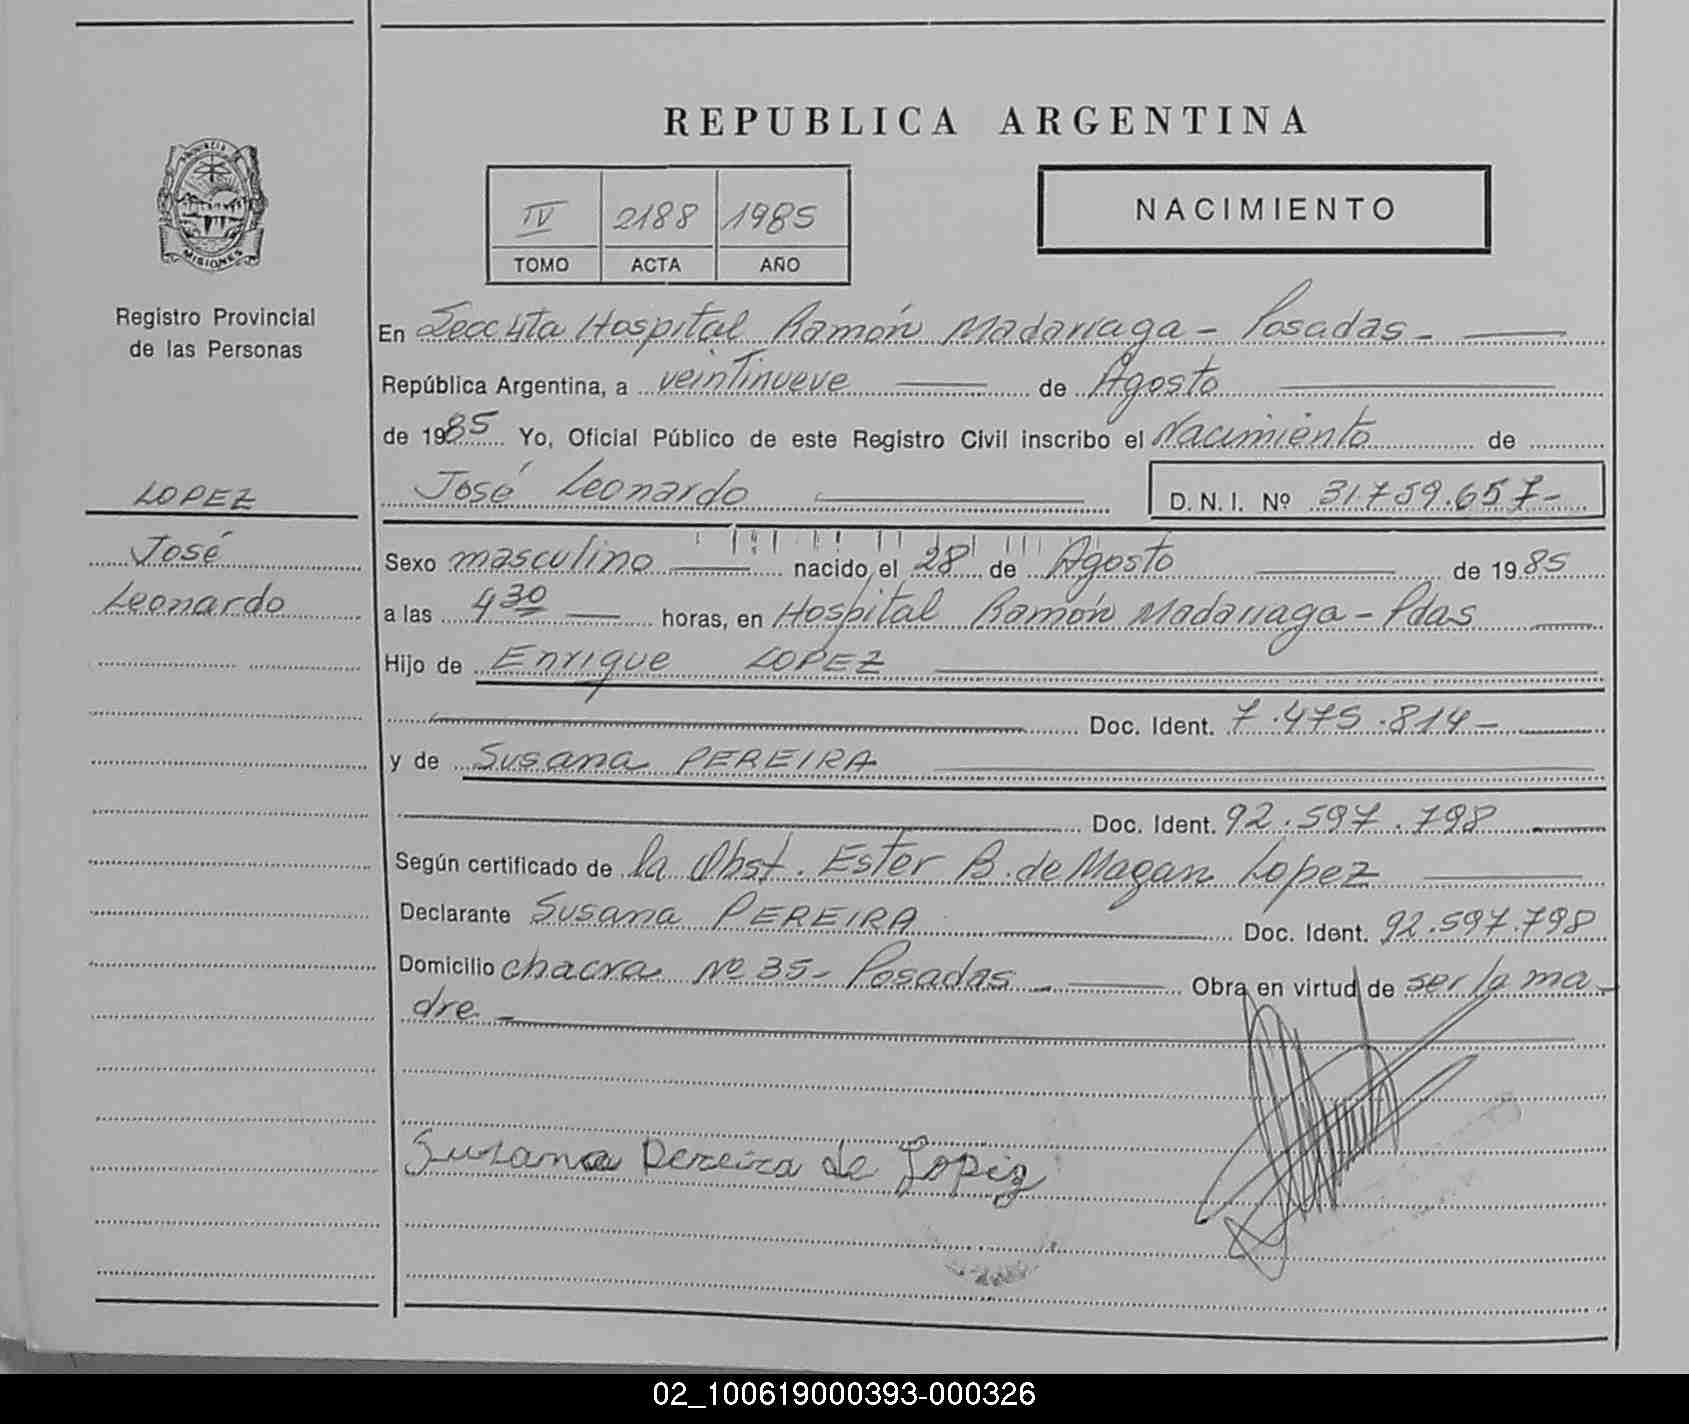 REPUBLICA ARGENTINA
PROVINCIA DE
MISIONES
Registro Provincial
de las Personas
IV 2188 1985
TOMO ACTA AÑO
NACIMIENTO
LOPEZ
José
Leonardo
En Secc 4ta Hospital Ramón Madariaga - Posadas -
República Argentina, a veintinueve de Agosto
de 1985 Yo, Oficial Público de este Registro Civil inscribo el Nacimiento de
José Leonardo D. N. I. Nº 31.759.657-
Sexo masculino nacido el 28 de Agosto de 1985
a las 4 30 horas, en Hospital Ramón Madariaga - Pdas
Hijo de Enrique LOPEZ
Doc. Ident. 7.475.814-
y de Susana PEREIRA
Doc. Ident. 92.597.798
Según certificado de la Obst. Ester B. de Magan Lopez
Declarante Susana PEREIRA Doc. Ident. 92.597.798
Domicilio chacra Nº 35- Posadas - Obra en virtud de ser la ma-
dre -
Susana Pereira de Lopez
02_100619000393-000326